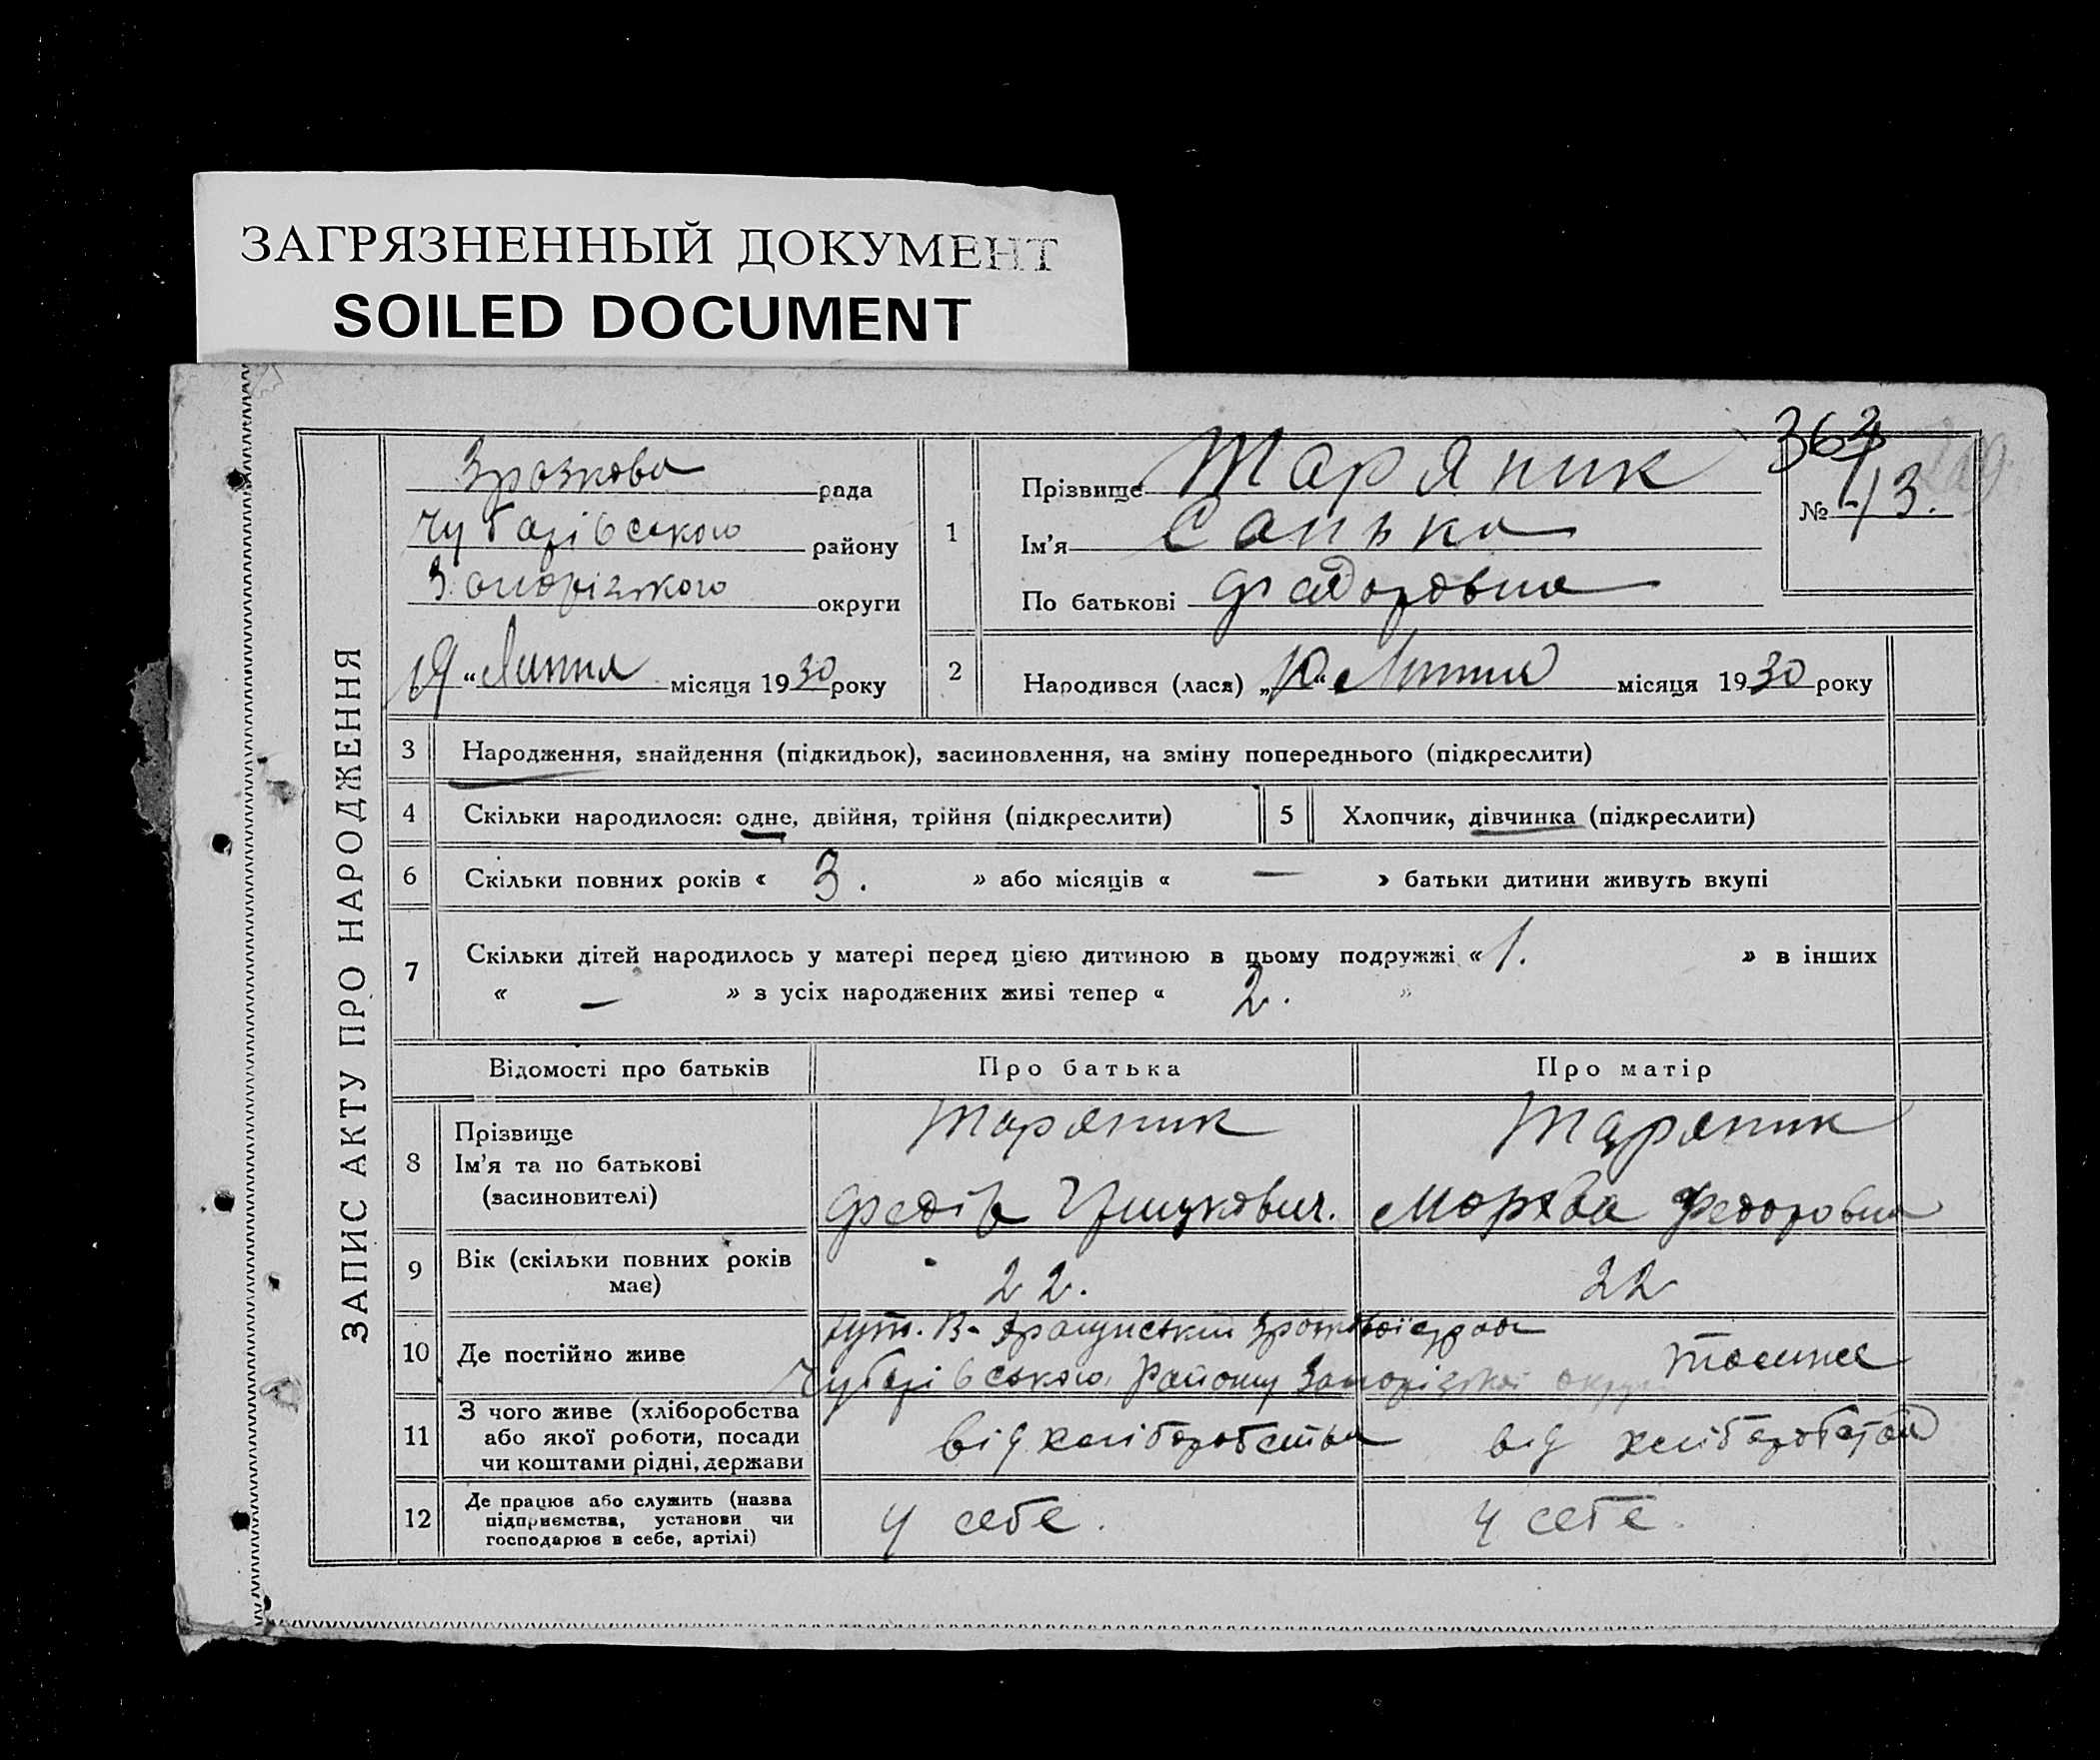 ЗАГРЯЗНЕННЫЙ ДОКУМЕНТ
SOILED DOCUMENT
ЗАПИС АКТУ ПРО НАРОДЖЕННЯ
Зразкова рада
Чубарівського району
Запорізького округи
19 „ Липня місяця 1930 року
1
Прізвище Таряник
Ім'я Санька
По батькові Федоровна
№ 13.
2 Народився (лася) „ " Липня місяця 1930 року
3 Народження, знайдення (підкидьок), засиновлення, на зміну попереднього (підкреслити)
4 Скільки народилося: одне, двійня, трійня (підкреслити)
5 Хлопчик, дівчинка (підкреслити)
6 Скільки повних років « 3. » або місяців « — » батьки дитини живуть вкупі
7 Скільки дітей народилось у матері перед цією дитиною в цьому подружжі « 1. » в інших
« — » з усіх народжених живі тепер « 2. »
Відомості про батьків Про батька Про матір
8 Прізвище
Ім'я та по батькові
(засиновителі)
Таряник
Федір Грицкович.
Таряник
Федоровна
9 Вік (скільки повних років
має)
22.
22
10 Де постійно живе
хут. В-
Чубарівського Району Запорізької округи
тосиже
11 З чого живе (хліборобства
або якої роботи, посади
чи коштами рідні, держави
від хліборобства
від хліборобства
12 Де працює або служить (назва
підприємства, установи чи
господарює в себе, артілі)
У себе.
У себе.